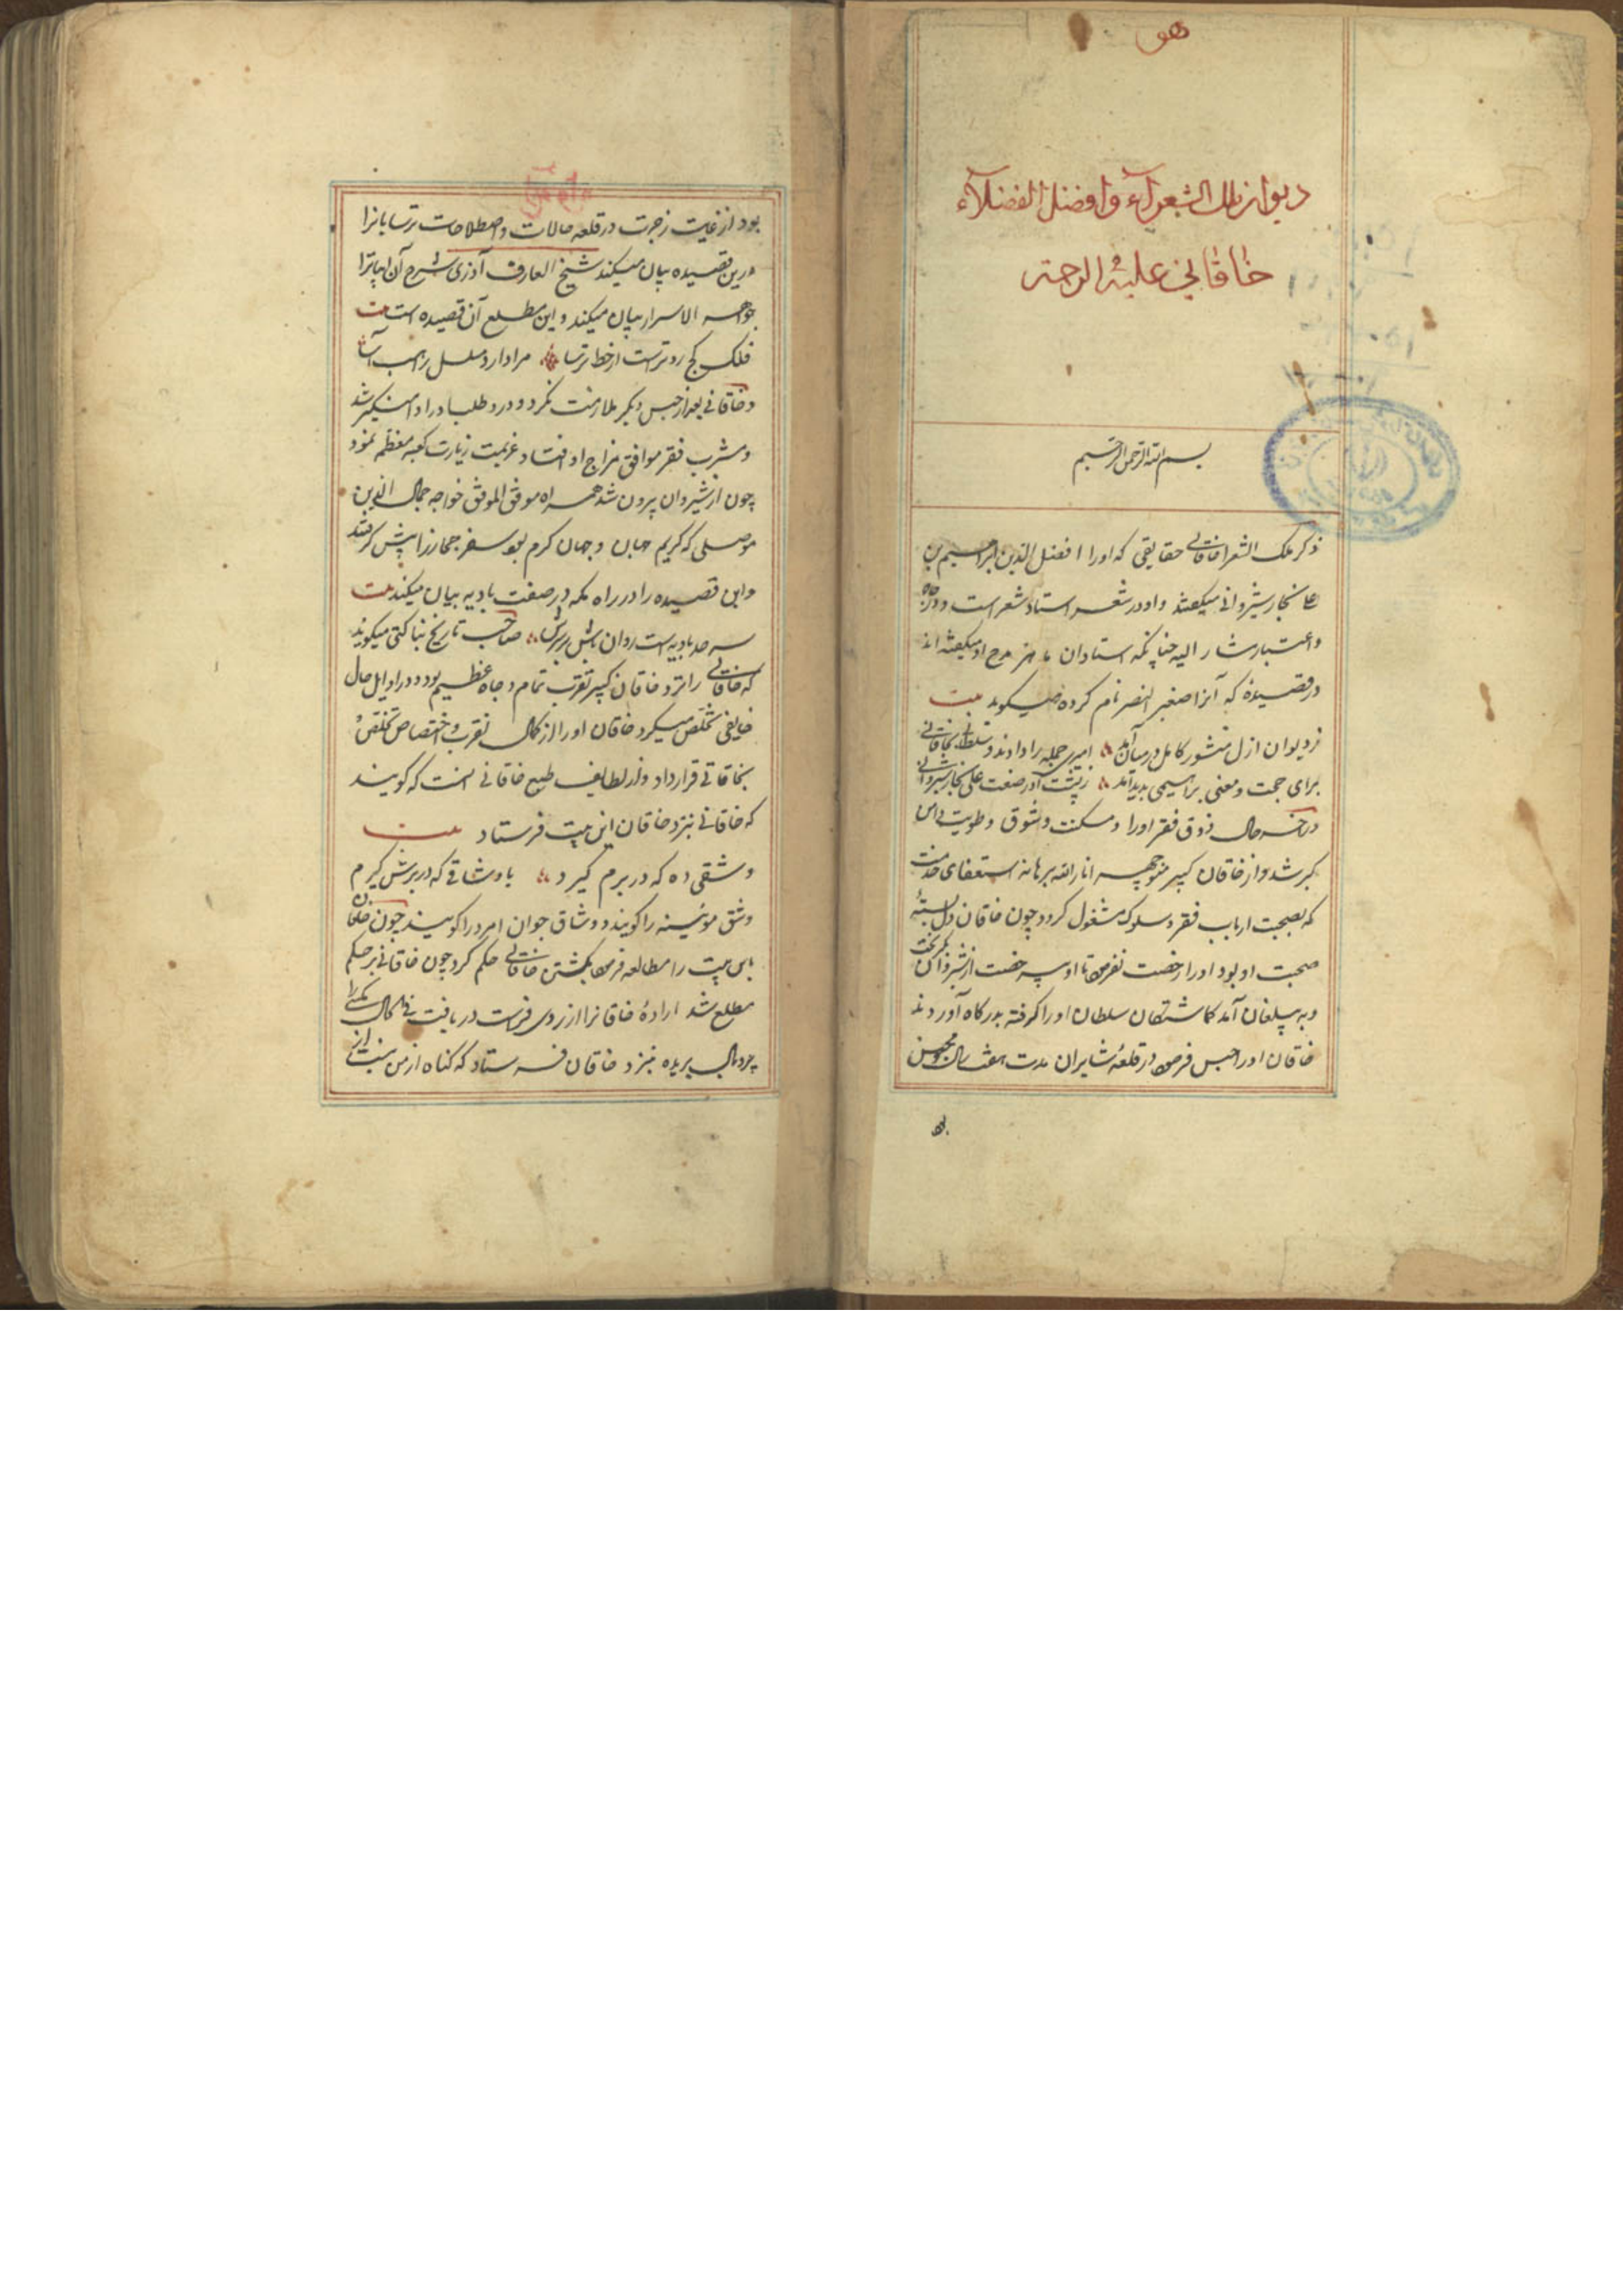 هو
دیوان ملک الشعرآء و افضل الفضلآء
خاقانی علیه الرحمة
بسم الله الرحمن الرحیم
ذکر ملک الشعرا خاقانی حقایقی که اورا افضل الدین ابراهیم بن
علی نجار شیروانی میکفتند و او در شعر استاد شعر است و در جاه
و اعتبار مشار الیه چنانکه استادان ماهر مدح او میکفته اند
در قصیدهٔ که آنرا صغیر النصر نام کرده میکوید بیت
ز دیوان ازل منشور کامل در میان آمد امیری جمله را دادند و سلطانی بخاقانی
برای حجت و معنی براهیمی پدید آمد ز پشت آذر صنعت علی نجار شیروانی
در آخر حال ذوق فقر اورا و مسکنت و شوق و طویت دامن
کیر شد و از خاقان کبیر منوچهر انار الله برهانه استعفای خدمت
که بصحبت ارباب فقر و سلوک مشغول کردد چون خاقان دل بستهٔ
صحبت او بود اورا رخصت نفرمود تا او بی رخصت از شیروان بکریخت
و به بیلغان آمد کماشتکان سلطان اورا کرفته بدرکاه آوردند
خاقان اورا حبس فرمود در قلعهٔ شابران مدت هفت سال محبوس
بود از غایت زجرت در قلعه حالات و اصطلاحات ترسایانرا
درین قصیده بیان میکند شیخ العارف آذری شرح آن ابیاترا
جواهر الاسرار بیان میکند و این مطلع آن قصیده است بیت
فلک کج روترست از خط ترسا مرا دارد مسلسل راهب آسا
و خاقانی بعد از حبس دیکر ملازمت نکرد و درد طلب اورا دامنکیر شد
و مشرب فقر موافق مزاج او افتاد و عزیمت زیارت کعبه معظم نمود
چون از شیروان بیرون شد همراه موفق الموفق خواجه جمال الدین
موصلی که کریم جهان و جهان کرم بود سفر حجازرا پیش کرفتند
و این قصیده را در راه مکه در صفت بادیه بیان میکند بیت
سر حد بادیه است روان باش بر سرش صاحب تاریخ بناکتی میکوید
که خاقانی را نزد خاقان کبیر تقرب تمام و جاه عظیم بود و در اوایل حال
حقایقی تخلص میکرد خاقان اورا از کمال تقرب و اختصاص تخلص
بخاقانی قرار داد و از لطایف طبع خاقانی آنست که کویند
که خاقانی نزد خاقان این بیت فرستاد بیت
وشقی ده که در برم کیرد یا وشاقی که در برش کیرم
وشق موئینه را کویند و وشاق جوان امرد را کویند چون خاقان
این بیت را مطالعه فرمود بکشتن خاقانی حکم کرد چون خاقانی بر حکم
مطلع شد ارادهٔ خاقانرا از روی فراست دریافت فی الحال مکسی را
پر و بال بریده نزد خاقان فرستاد که کناه از من نیست از